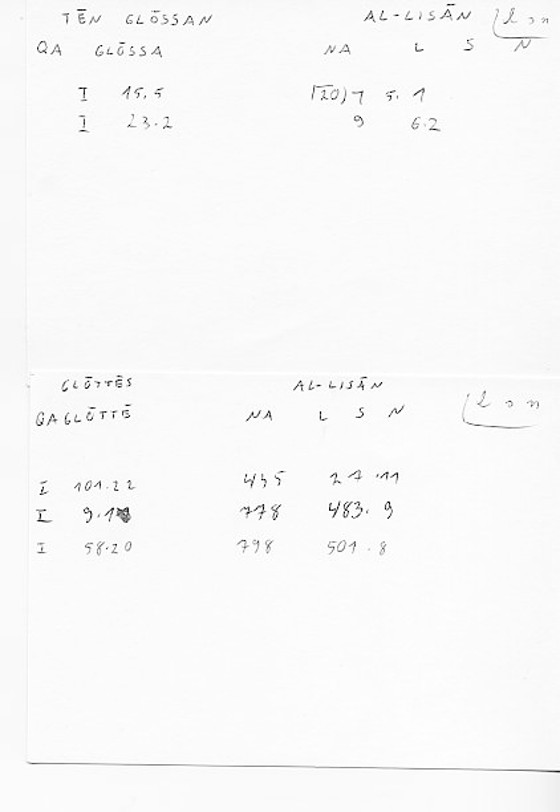 TĒN GLŌSSAN AL-LISĀN
QA GLŌSSA NA L S N
I 15.5 5.1
I 23.2 9 6.2
GLŌTTĒS AL-LISĀN
QA GLŌTTĒ NA L S N
I 101.22 435 27.11
I 9. 778 483.9
I 58.20 798 501.8